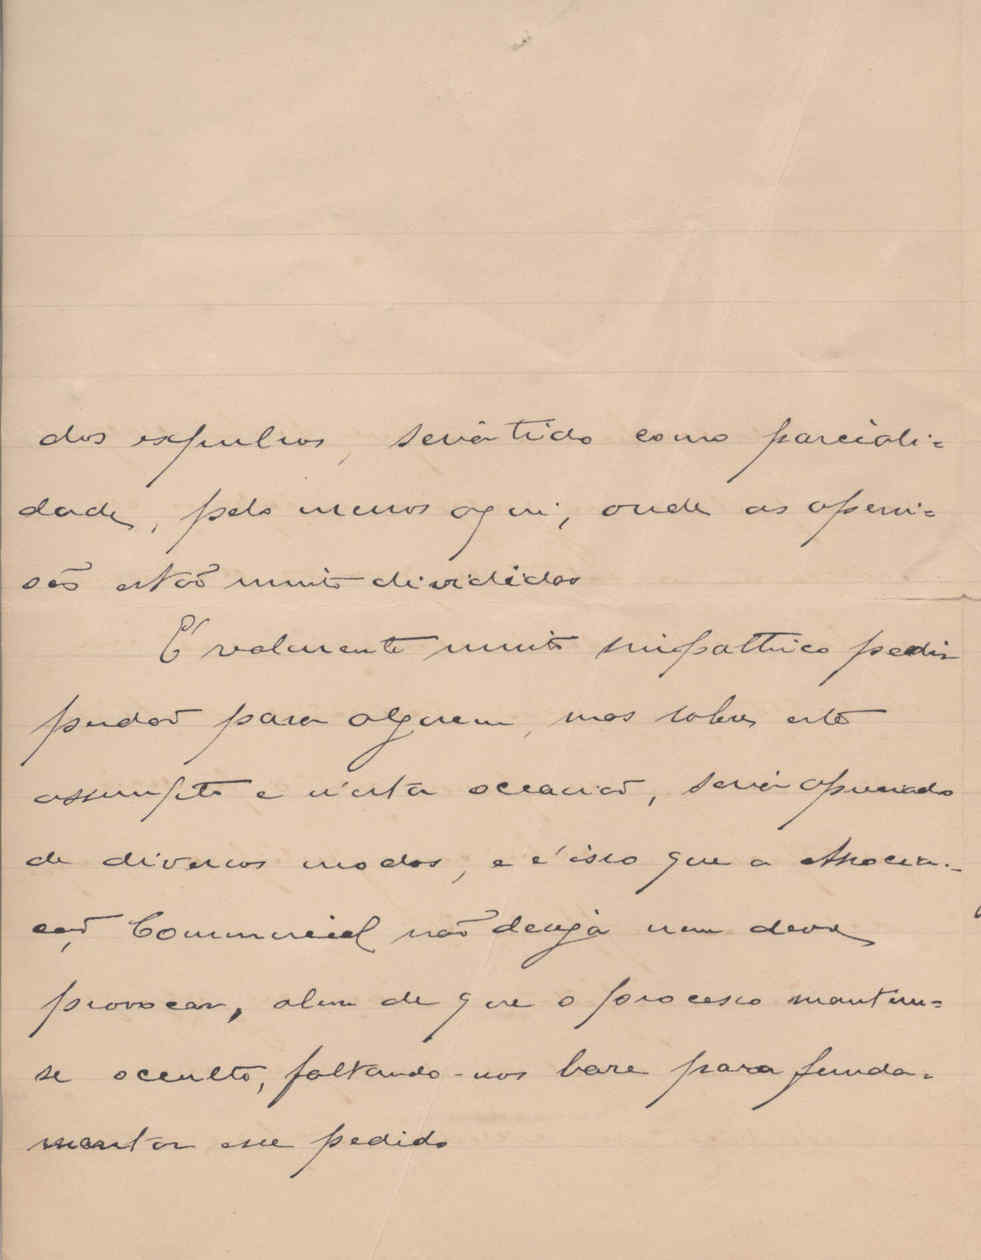 dos expulsos, seria tido como parciali=
dade, pelo menos aqui, onde as openi=
oẽs estaõ muito divididas
É realmente muito simpathico pedir
perdaõ para alguem, mas sobre este
assumpto e n'esta occasiaõ, seria apreciado
de diversos modos, e é isso que a Associa-
caõ Commercial naõ deseja nem deve
provocar, alem de que o processo mantem=
se occulto, faltando-nos base para funda=
mentar esse pedido